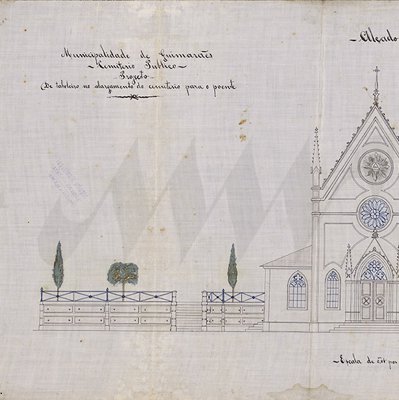 Municipalidade de Guimarães
- Cemiterio Publico -
Projeto
De taboleiro no alargamento do cemiterio para o poente
- Alçado
- Escala de por